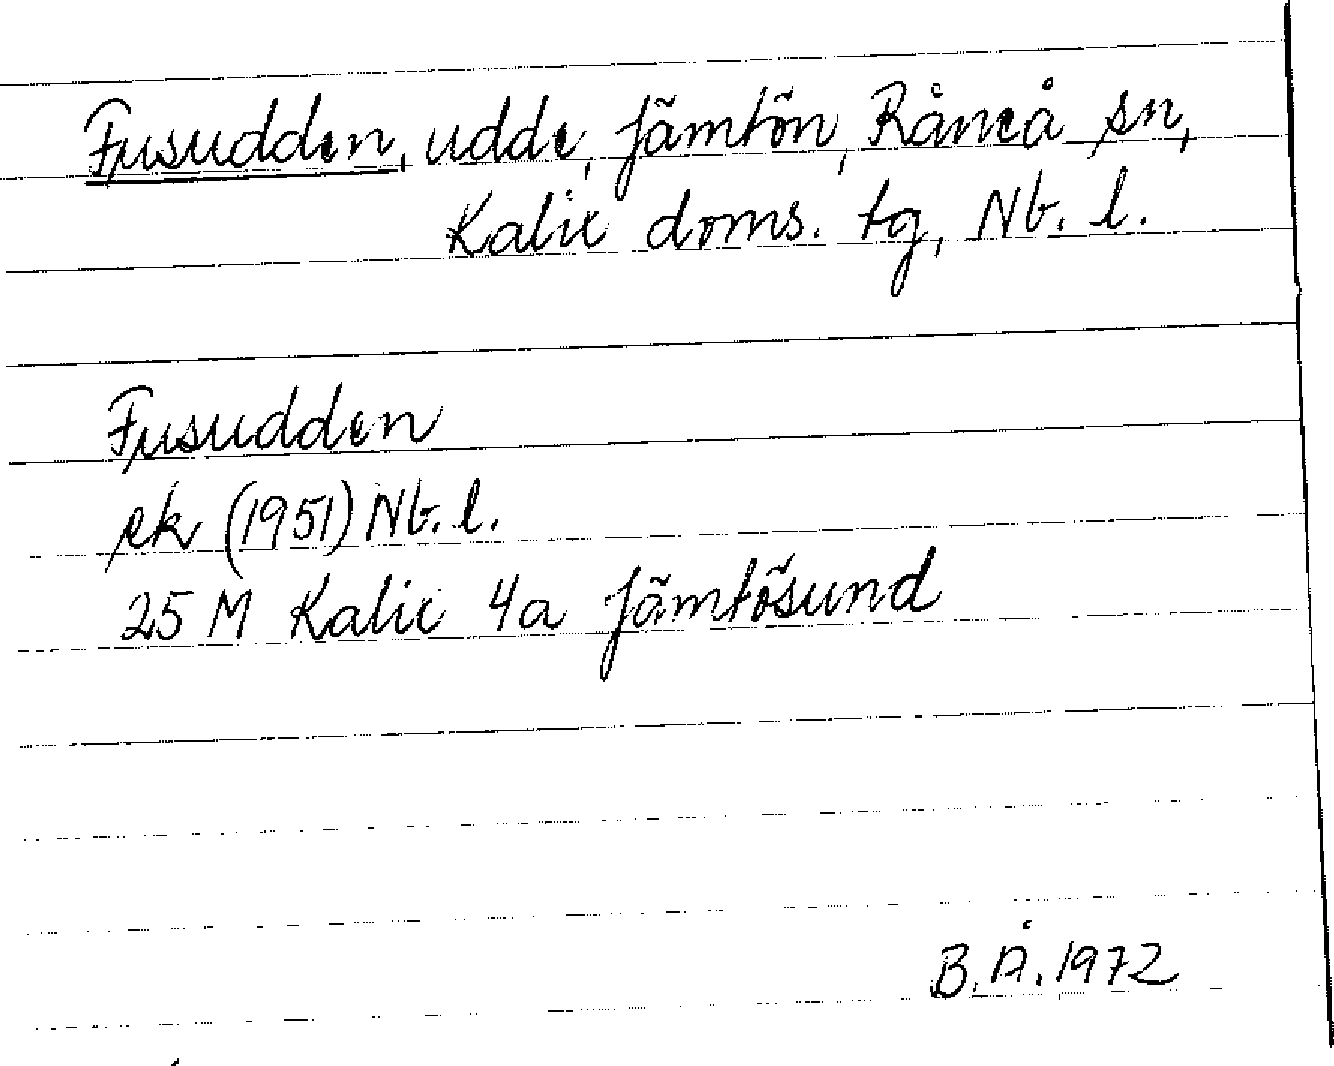 Fusudden, udde, Jämtön, Råneå sn,
Kalix doms. tg, Nb. l.
Fusudden
ek (1951) Nb. l.
25 M Kalix 4a Jämtösund
B. Å. 1972